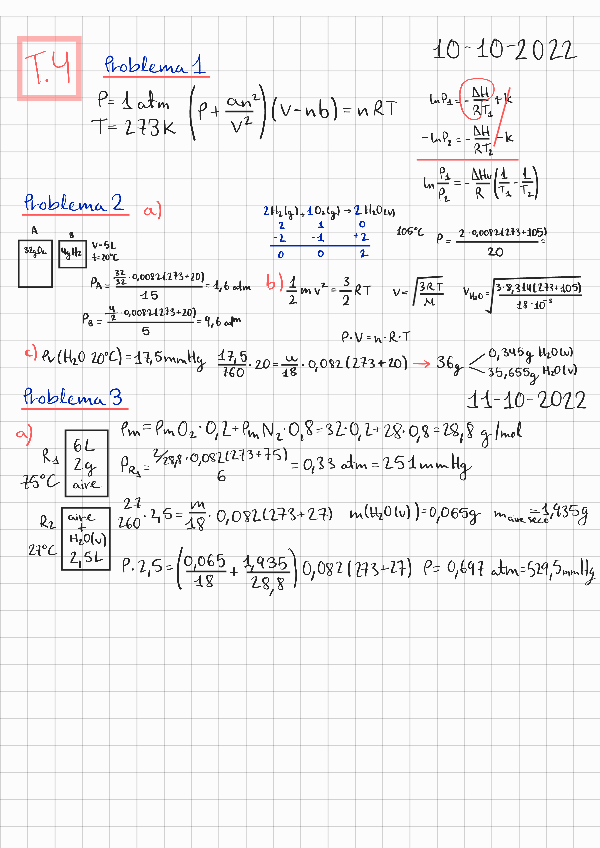 T.4
10-10-2022
Problema 1
P = 1 atm
T = 273 K
(P + an²/V²)(V - nb) = nRT
ln P₁ = -ΔH/RT₁ + k
-ln P₂ = -ΔH/RT₂ - k
ln P₁/P₂ = -ΔHv/R (1/T₁ - 1/T₂)
Problema 2
a)
A
32g O₂
B
4g H₂
V=5L
t=20ºC
P_A = 32/32 · 0,082(273+20)/15 = 1,6 atm
P_B = 4/2 · 0,082(273+20)/5 = 9,6 atm
2H₂(g) + 1O₂(g) → 2H₂O(v)
2 1 0
-2 -1 +2
0 0 2
105ºC P = 2 · 0,082(273+105)/20 =
b) 1/2 m v² = 3/2 RT V = √(3RT/M) V_H₂O = √(3·8,314(273+105)/18·10⁻³)
P·V = n·R·T
c) Pv (H₂O 20ºC) = 17,5 mmHg 17,5/760 · 20 = m/18 · 0,082(273+20) → 36g
0,345g H₂O(v)
35,655g H₂O(v)
Problema 3
11-10-2022
a)
R₁
75ºC
6L
2g
aire
Pm = Pm O₂ · 0,2 + Pm N₂ · 0,8 = 32·0,2 + 28·0,8 = 28,8 g/mol
P_R₁ = 2/28,8 · 0,082(273+75)/6 = 0,33 atm = 251 mmHg
R₂
27ºC
aire
+
H₂O(v)
2,5L
27/760 · 2,5 = m/18 · 0,082(273+27) m(H₂O(v)) = 0,065g m aire seco = 1,935g
P · 2,5 = (0,065/18 + 1,935/28,8) 0,082(273+27) P = 0,697 atm = 529,5 mmHg